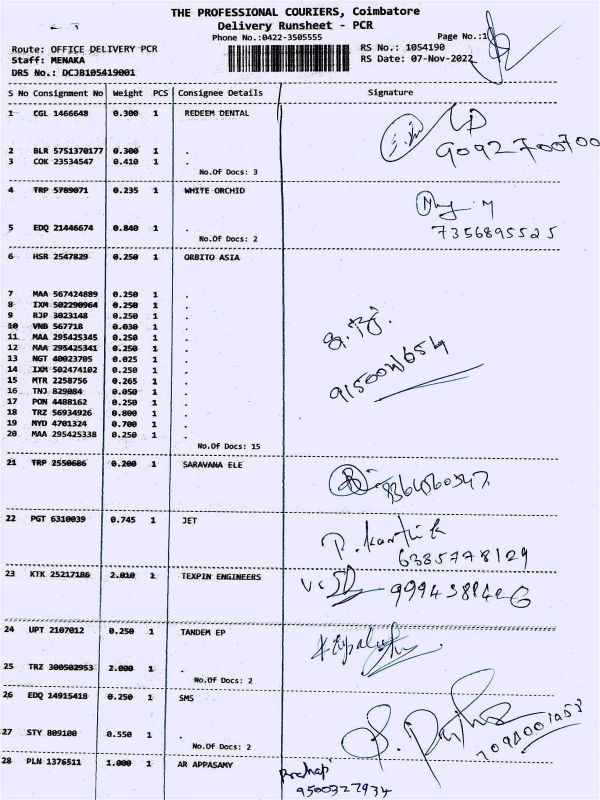 THE PROFESSIONAL COURIERS, Coimbatore
Delivery Runsheet - PCR
Phone No.:0422-3505555
Page No.:1
Route: OFFICE DELIVERY PCR
RS No.: 1054190
Staff: MENAKA
RS Date: 07-Nov-2022
DRS No.: DCJB105419001
S No Consignment No Weight PCS Consignee Details Signature
1 CGL 1466648 0.300 1 REDEEM DENTAL
9092700700
2 BLR 5751370177 0.300 1 .
3 COK 23534547 0.410 1 .
No.Of Docs: 3
4 TRP 5789071 0.235 1 WHITE ORCHID
5 EDQ 21446674 0.840 1 .
7356895525
No.Of Docs: 2
6 HSR 2547829 0.250 1 ORBITO ASIA
7 MAA 567424889 0.250 1 .
8 IXM 502290964 0.250 1 .
9 RJP 3023148 0.250 1 .
10 VNB 567718 0.030 1 .
11 MAA 295425345 0.250 1 .
12 MAA 295425341 0.250 1 .
13 NGT 40023705 0.025 1 .
14 IXM 502474102 0.250 1 .
15 MTR 2258756 0.265 1 .
16 TNJ 829084 0.050 1 .
17 PON 4488162 0.250 1 .
18 TRZ 56934926 0.800 1 .
19 MYD 4701324 0.700 1 .
20 MAA 295425338 0.250 1 .
No.Of Docs: 15
21 TRP 2550686 0.200 1 SARAVANA ELE
22 PGT 6310039 0.745 1 JET
P. Karthik
6385778129
23 KTK 25217186 2.010 1 TEXPIN ENGINEERS
24 UPT 2107012 0.250 1 TANDEM EP
25 TRZ 300502953 2.000 1 .
No.Of Docs: 2
26 EDQ 14915418 0.250 1 SMS
27 STY 809100 0.550 1 .
No.Of Docs: 2
28 PLN 1376511 1.000 1 AR APPASAMY
9500327934